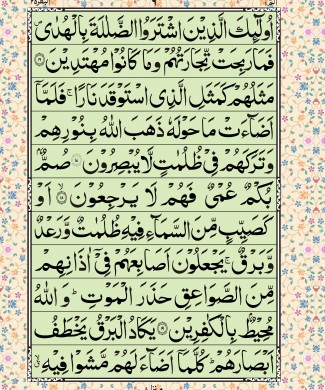 اُولٰٓئِكَ الَّذِيْنَ اشْتَرَوُا الضَّلٰلَةَ بِالْهُدٰى
فَمَا رَبِحَتْ تِّجَارَتُهُمْ وَمَا كَانُوْا مُهْتَدِيْنَ ﴿١٦﴾
مَثَلُهُمْ كَمَثَلِ الَّذِى اسْتَوْقَدَ نَارًا ۚ فَلَمَّآ
اَضَآءَتْ مَا حَوْلَهٗ ذَهَبَ اللّٰهُ بِنُوْرِهِمْ
وَتَرَكَهُمْ فِىْ ظُلُمٰتٍ لَّا يُبْصِرُوْنَ ﴿١٧﴾ صُمٌّۢ
بُكْمٌ عُمْىٌ فَهُمْ لَا يَرْجِعُوْنَ ﴿١٨﴾ اَوْ
كَصَيِّبٍ مِّنَ السَّمَآءِ فِيْهِ ظُلُمٰتٌ وَّرَعْدٌ
وَّبَرْقٌ ۚ يَجْعَلُوْنَ اَصَابِعَهُمْ فِىْٓ اٰذَانِهِمْ
مِّنَ الصَّوَاعِقِ حَذَرَ الْمَوْتِ ؕ وَاللّٰهُ
مُحِيْطٌۢ بِالْكٰفِرِيْنَ ﴿١٩﴾ يَكَادُ الْبَرْقُ يَخْطَفُ
اَبْصَارَهُمْ ؕ كُلَّمَآ اَضَآءَ لَهُمْ مَّشَوْا فِيْهِ